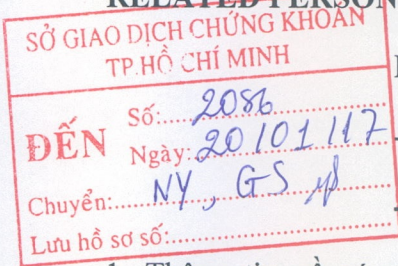 RELATED PERSON
SỞ GIAO DỊCH CHỨNG KHOÁN
TP.HỒ CHÍ MINH
ĐẾN
Số: 2086
Ngày: 20/01/17
Chuyển: NY, GS
Lưu hồ sơ số: